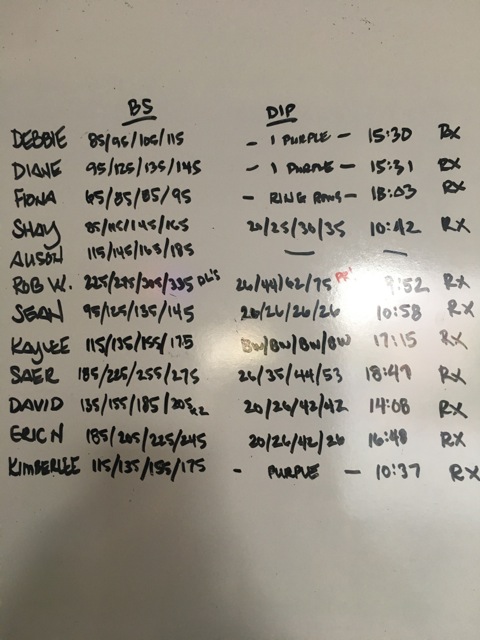 BS DIP
DEBBIE 85/95/105/115 - 1 PURPLE - 15:30 RX
DIANE 95/125/135/145 - 1 PURPLE - 15:31 RX
FIONA 65/85/85/95 - RING ROWS - 13:03 RX
SHAY 85/115/145/165 20/25/30/35 10:42 RX
ALISON 115/145/165/185 — —
ROB W. 225/275/305/335 DL'S 26/44/62/75 PR! 9:52 RX
SEAN 95/125/135/145 26/26/26/26 10:58 RX
KAYLEE 115/135/155/175 BW/BW/BW/BW 17:15 RX
SAER 185/225/255/275 26/35/44/53 18:49 RX
DAVID 135/155/185/205 x2 20/26/42/42 14:08 RX
ERIC N 185/205/225/245 20/26/42/26 16:48 RX
KIMBERLEE 115/135/155/175 - PURPLE - 10:37 RX